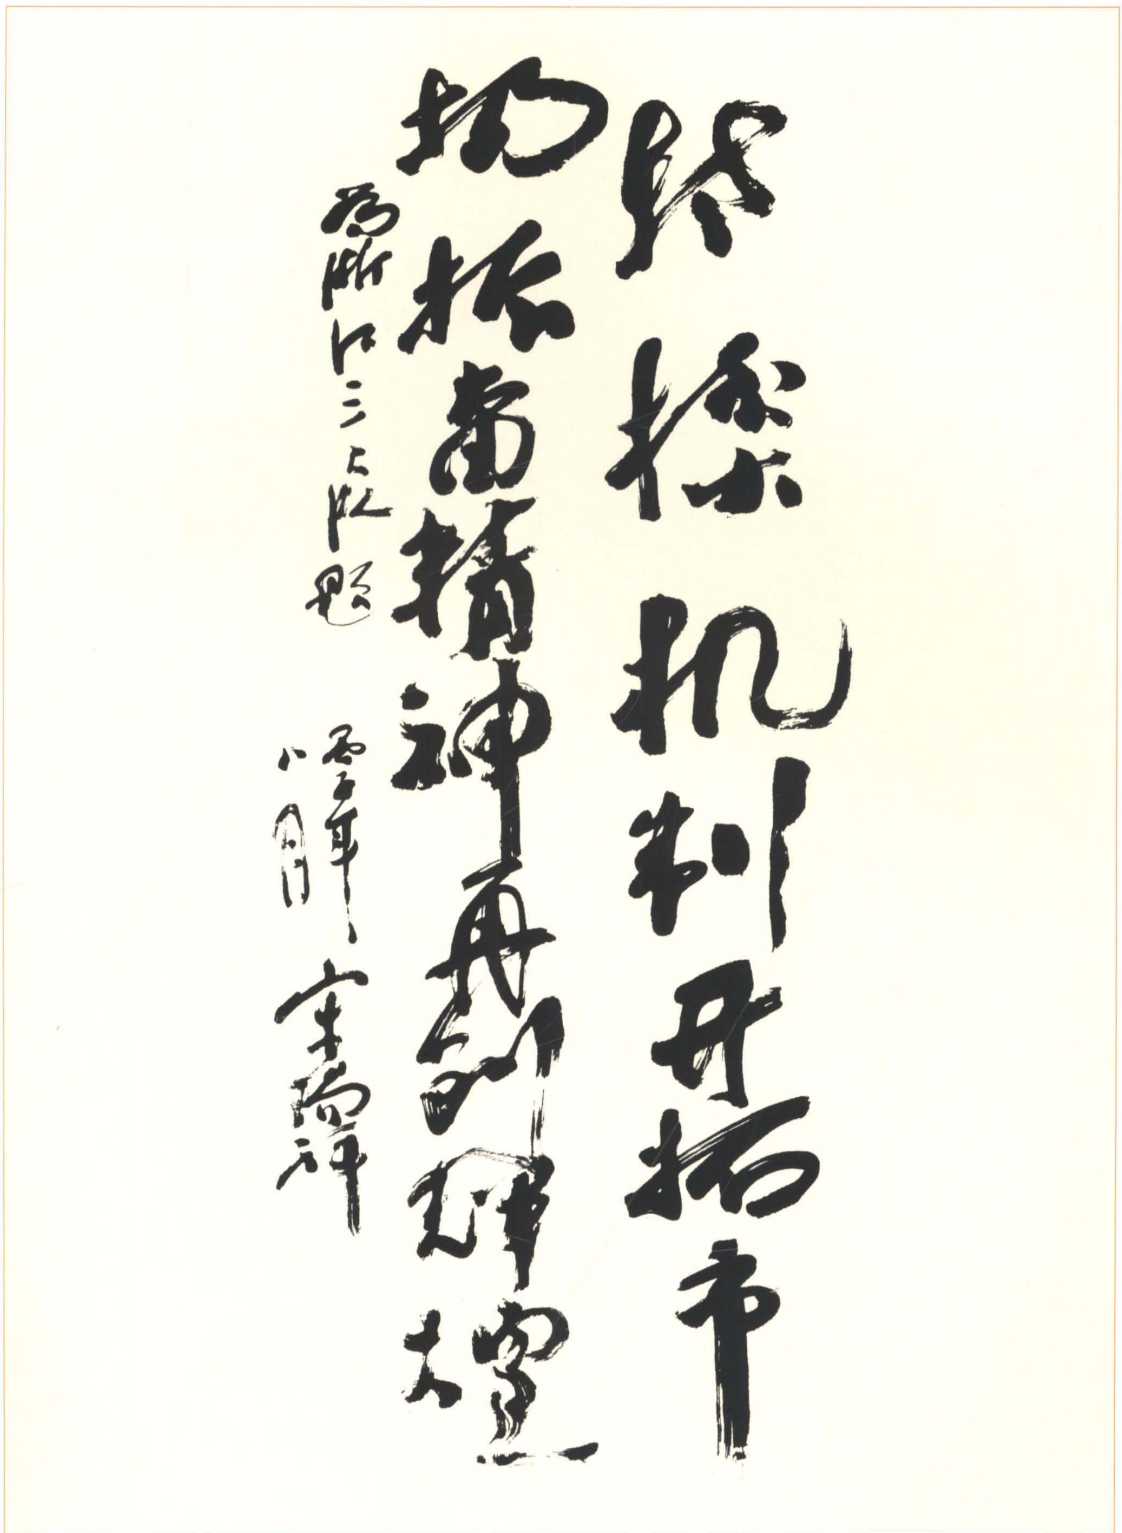 转换机制开拓市
场振奋精神再创辉煌
為浙江三 题
年
八月
宋瑞祥